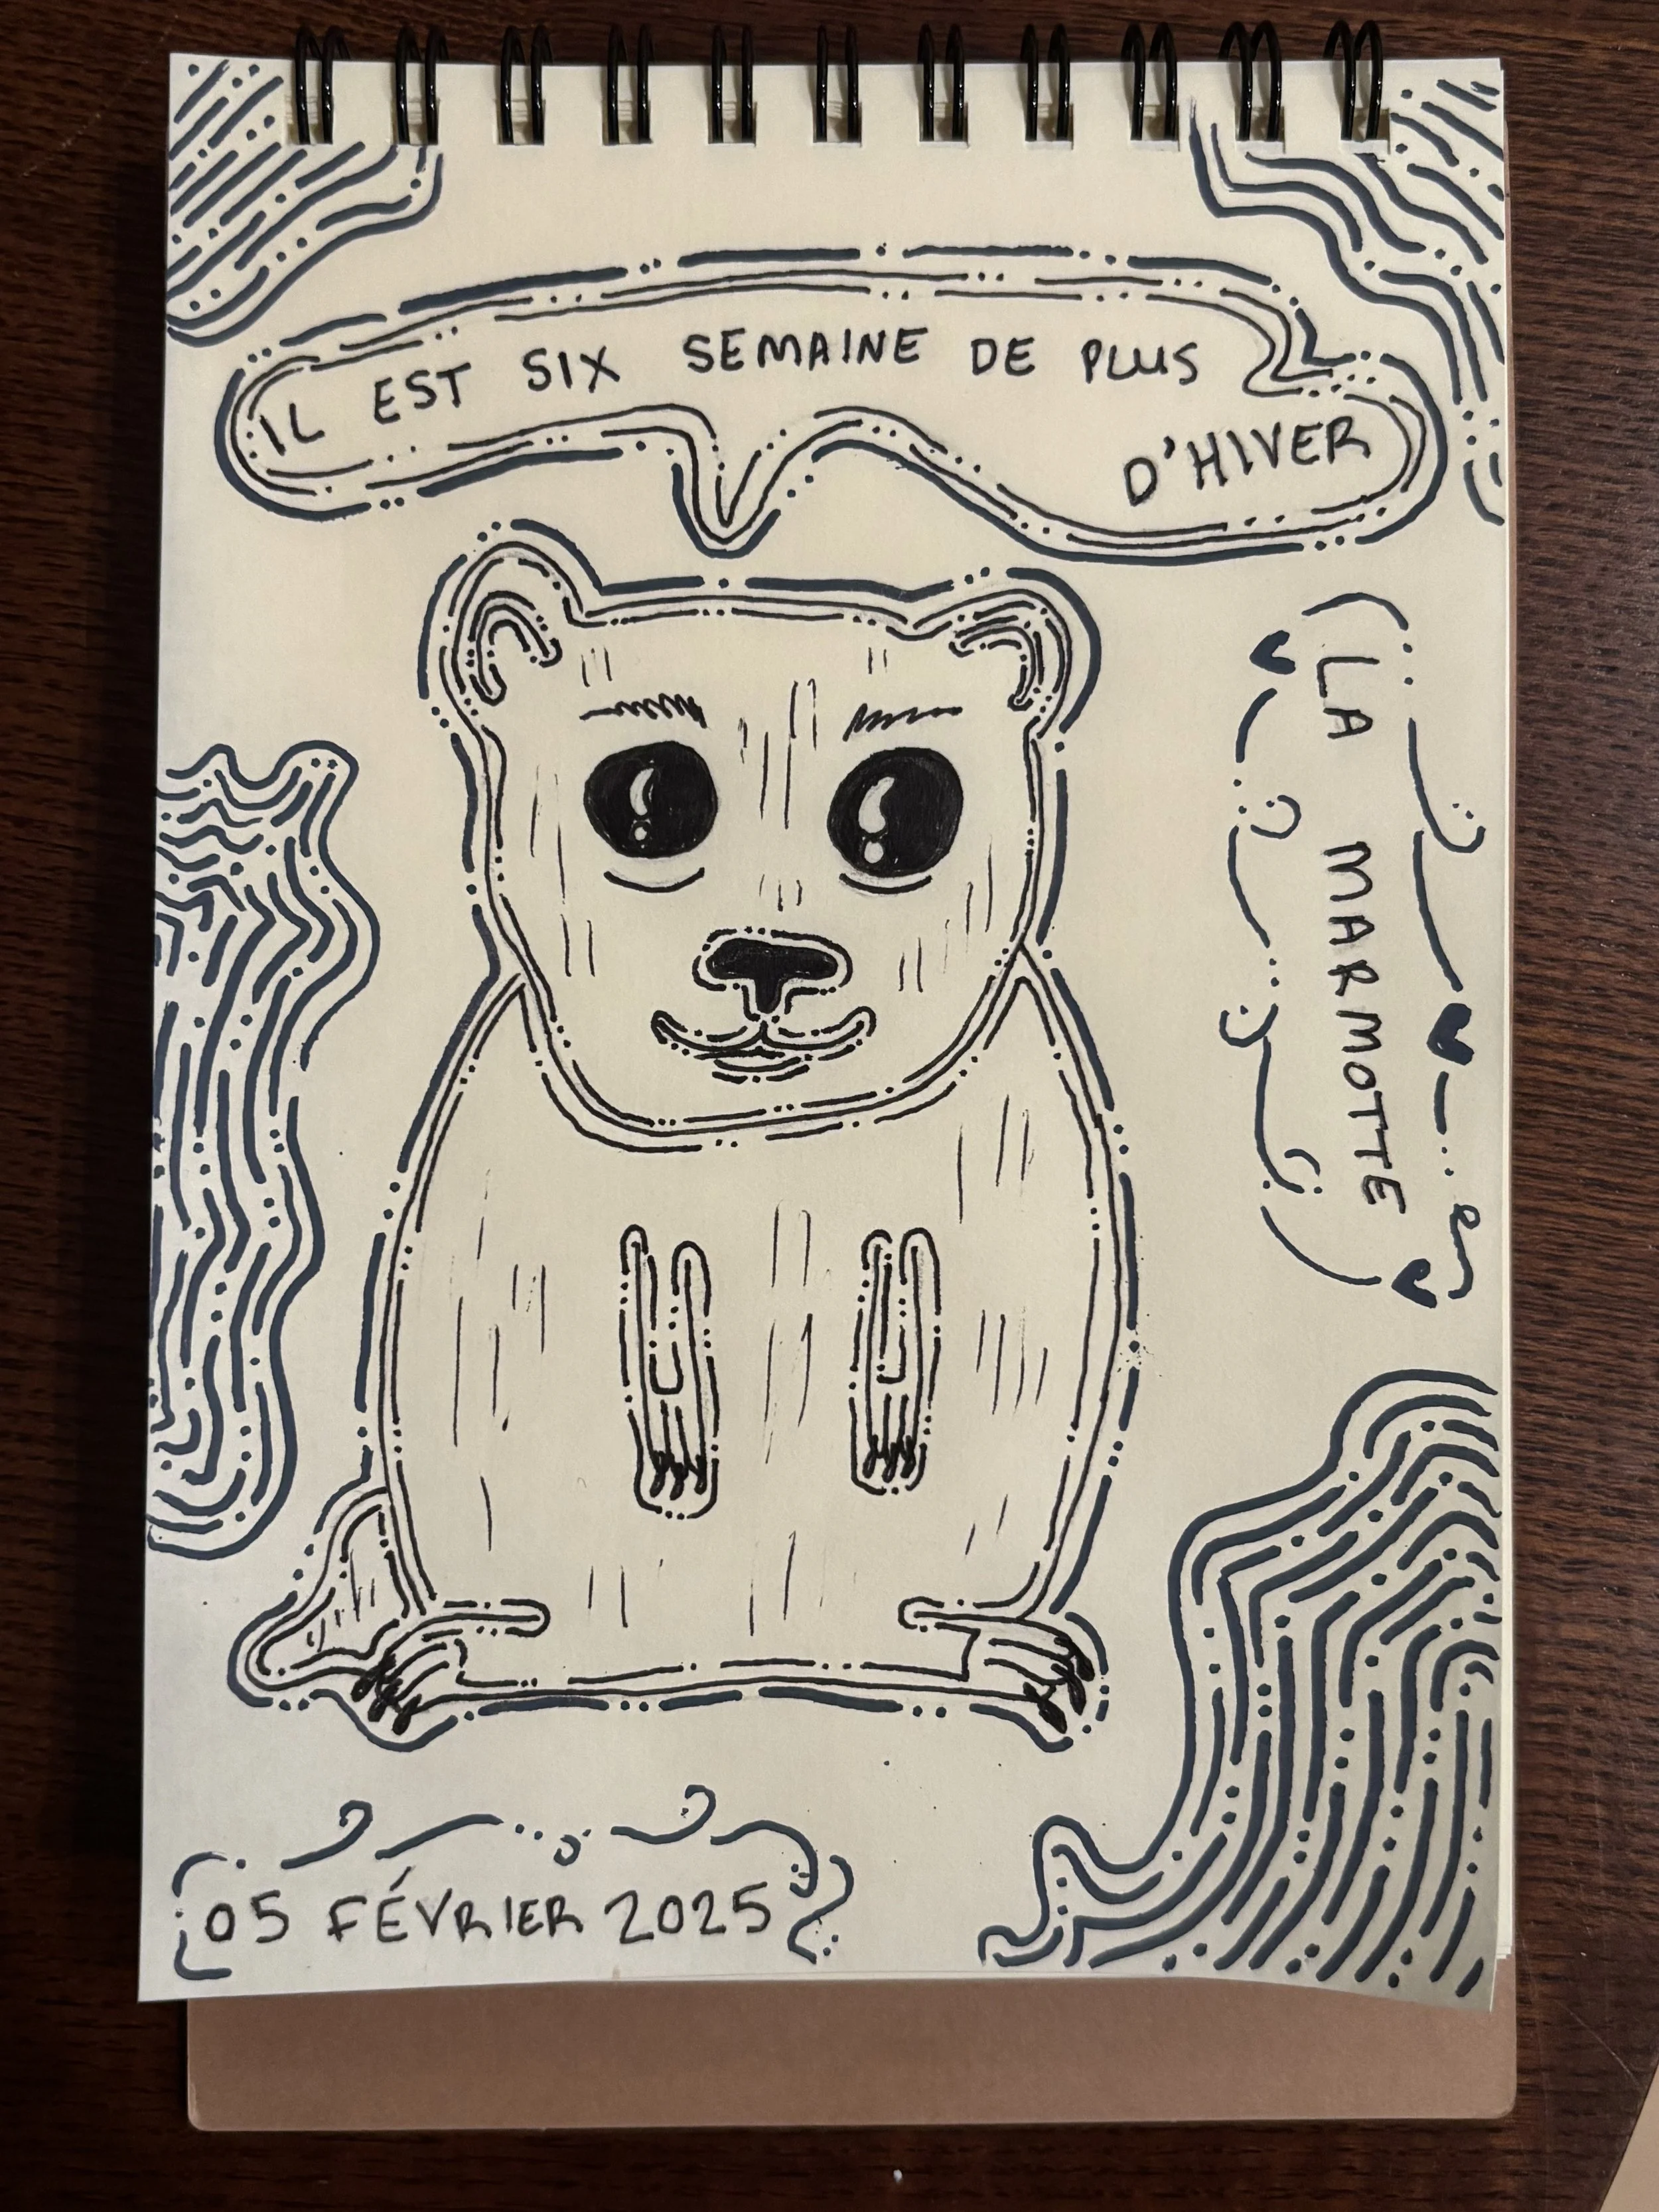 IL EST SIX SEMAINE DE PLUS
D'HIVER
LA MARMOTTE
05 FÉVRIER 2025